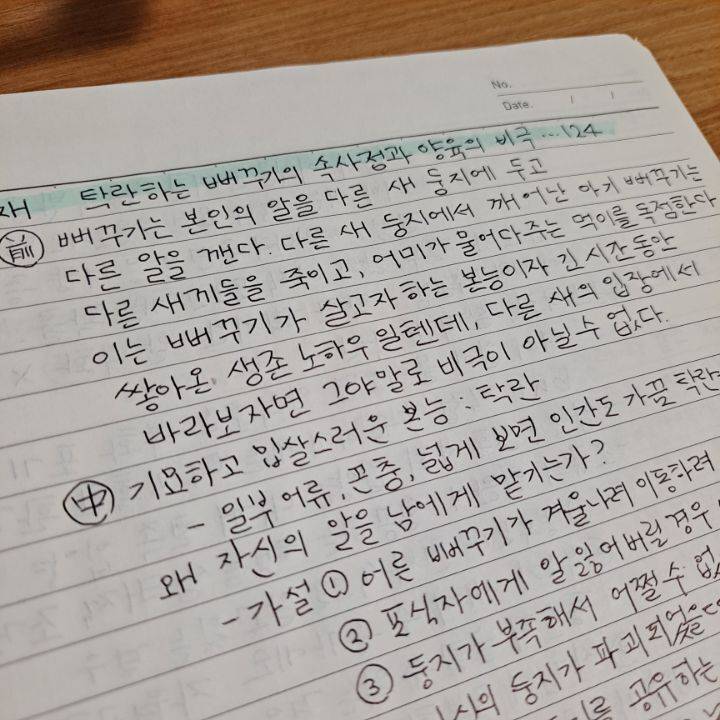 No.
Date. / /
재 탁란하는 뻐꾸기의 속사정과 양육의 비극 ... 124
前 뻐꾸기는 본인의 알을 다른 새 둥지에 두고
다른 알을 깬다. 다른 새 둥지에서 깨어난 아기 뻐꾸기는
다른 새끼들을 죽이고, 어미가 물어다주는 먹이를 독점한다
이는 뻐꾸기가 살고자 하는 본능이자 긴 시간동안
쌓아온 생존 노하우일텐데, 다른 새의 입장에서
바라보자면 그야말로 비극이 아닐 수 없다.
中 기묘하고 입살스러운 본능 : 탁란
- 일부 어류, 곤충, 넓게 보면 인간도 가끔 탁란
왜 자신의 알을 남에게 맡기는가?
- 가설 ① 어른 뻐꾸기가 겨울나려 이동하려
② 포식자에게 알 잃어버릴 경우
③ 둥지가 부족해서 어쩔 수 없
둥지가 파괴되었을
공유하는